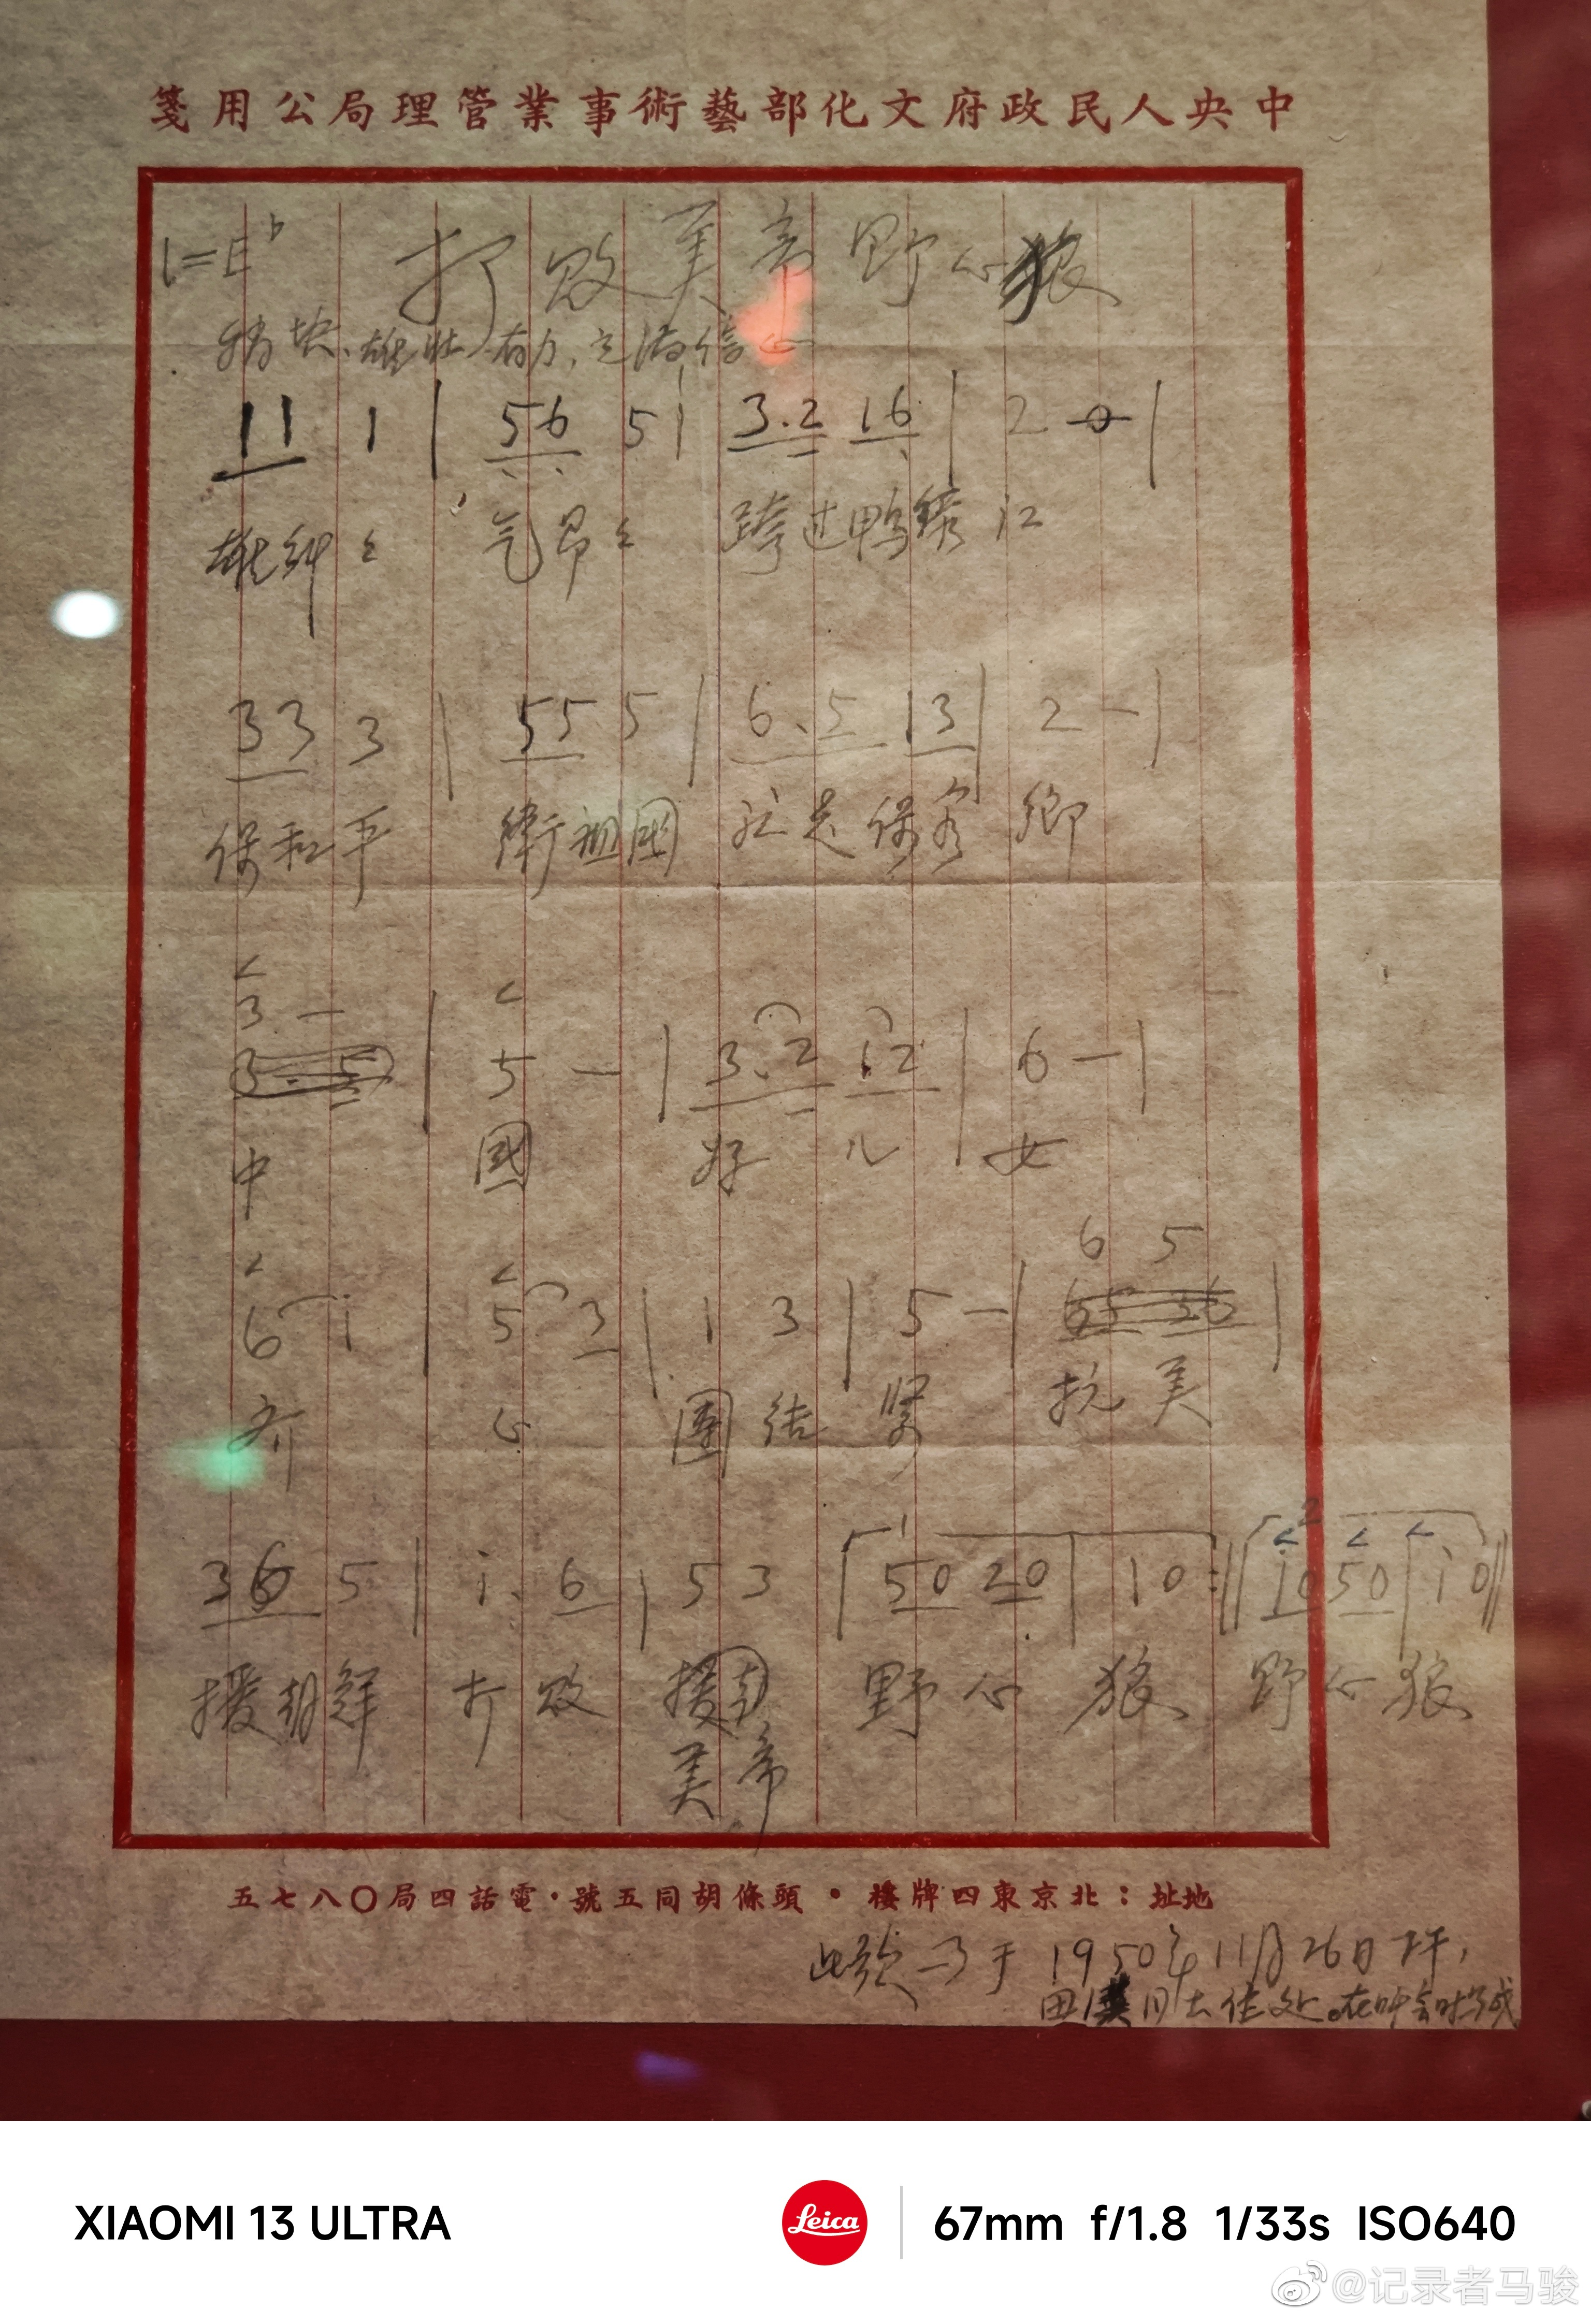 中央人民政府文化部藝術事業管理局公用箋
1=E♭ 打敗美帝野心狼
稍快、雄壮、有力、充滿信心
11 1 | 56 5 | 3.2 16 | 2 0 |
雄糾々 气昂々 跨过鸭綠江
33 3 | 55 5 | 6.5 13 | 2 — |
保和平 衛祖國 就是保家鄉
3 —
3. 5 | 5 — | 3.2 12 | 6 — |
中 國 好 儿 女
6 5
6 i | 5 3 | 1 3 | 5 — | 65 36 |
齐 心 團 结 紧 抗 美
1 2
36 5 | i. 6 | 5 3 | 50 20 | 10 :|| i0 50 | i 0 ||
援朝鮮 打敗 援朝 野心 狼 野心狼
美帝
地址：北京東四牌樓·頭條胡同五號·電話四局〇八七五
此歌写于1950年11月26日下午，
田漢同志住处。在吋会时写成
XIAOMI 13 ULTRA
Leica
67mm f/1.8 1/33s ISO640
@记录者马骏